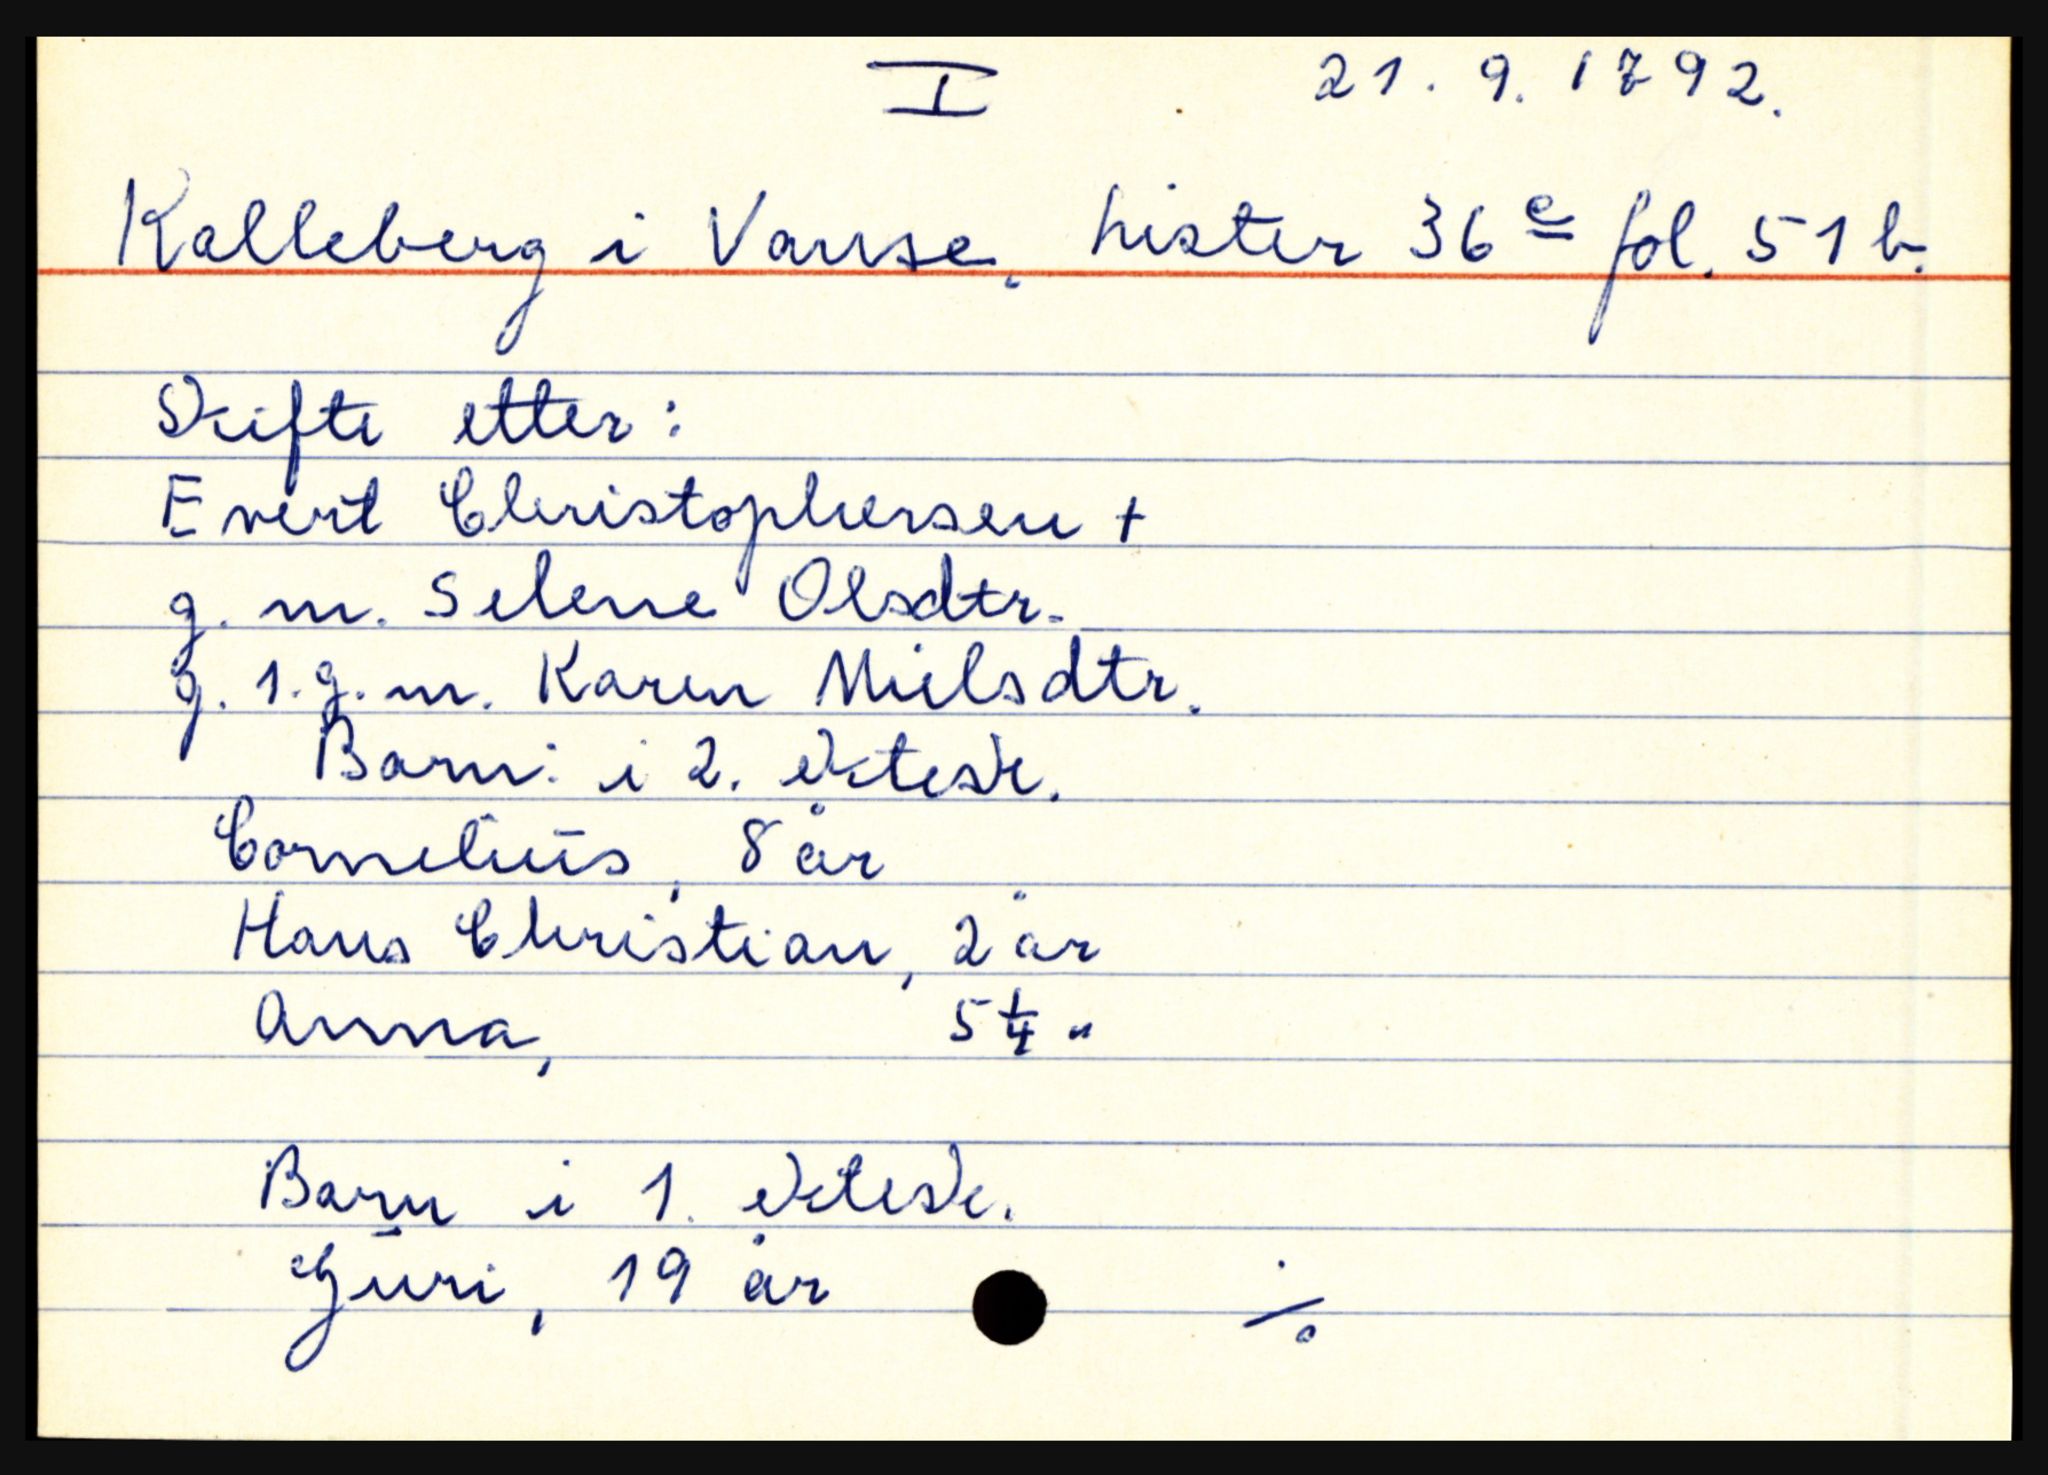 I 21.9.1792.
Kalleberg i Vanse, Lister 36 e fol. 51 b.
Skifte etter:
Evert Christophersen +
g. m. Selene Olsdtr.
g. 1. g. m. Karen Nielsdtr.
Barn: i 2. ektesk.
Cornelius, 8 år
Hans Christian, 2 år
Anna, 5 1/4 "
Barn i 1. ektesk.
Guri, 19 år ./.